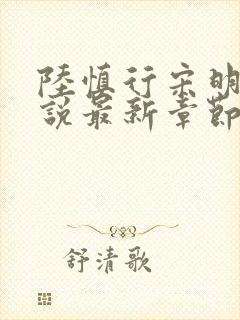 陸慎行宋明
說最新章節
舒清歌